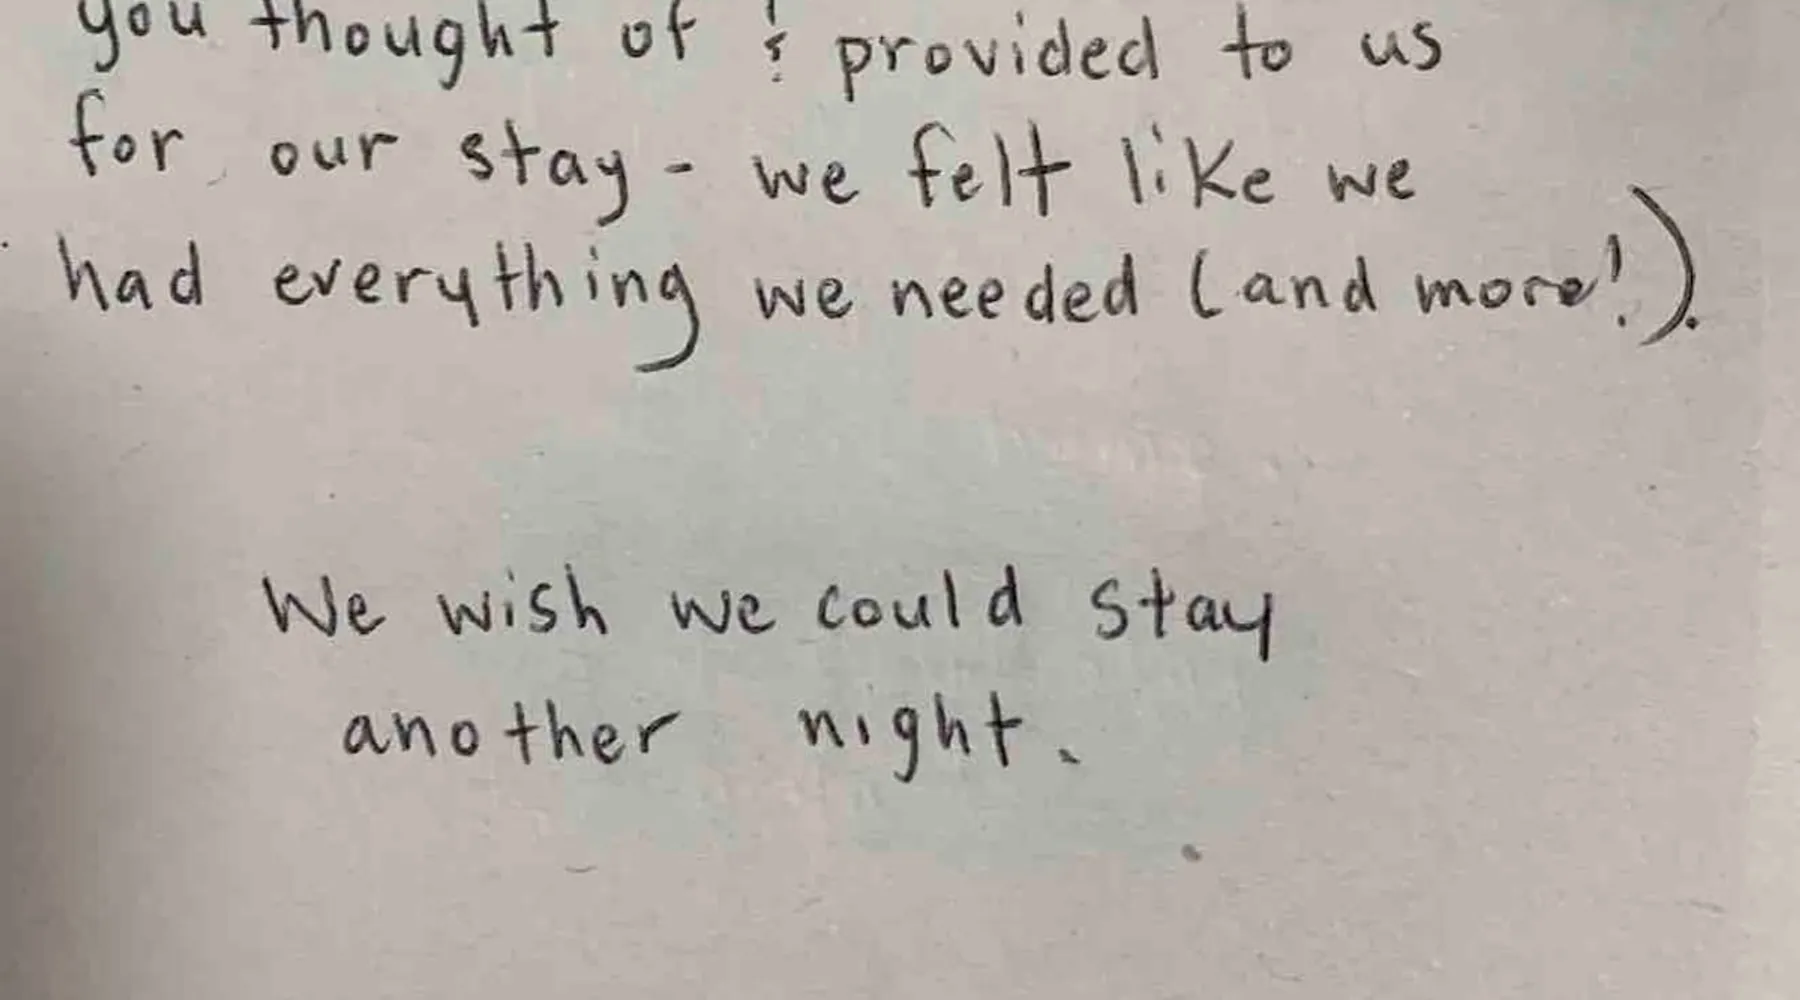 you thought of & provided to us
for our stay - we felt like we
had everything we needed (and more!).
We wish we could stay
another night.